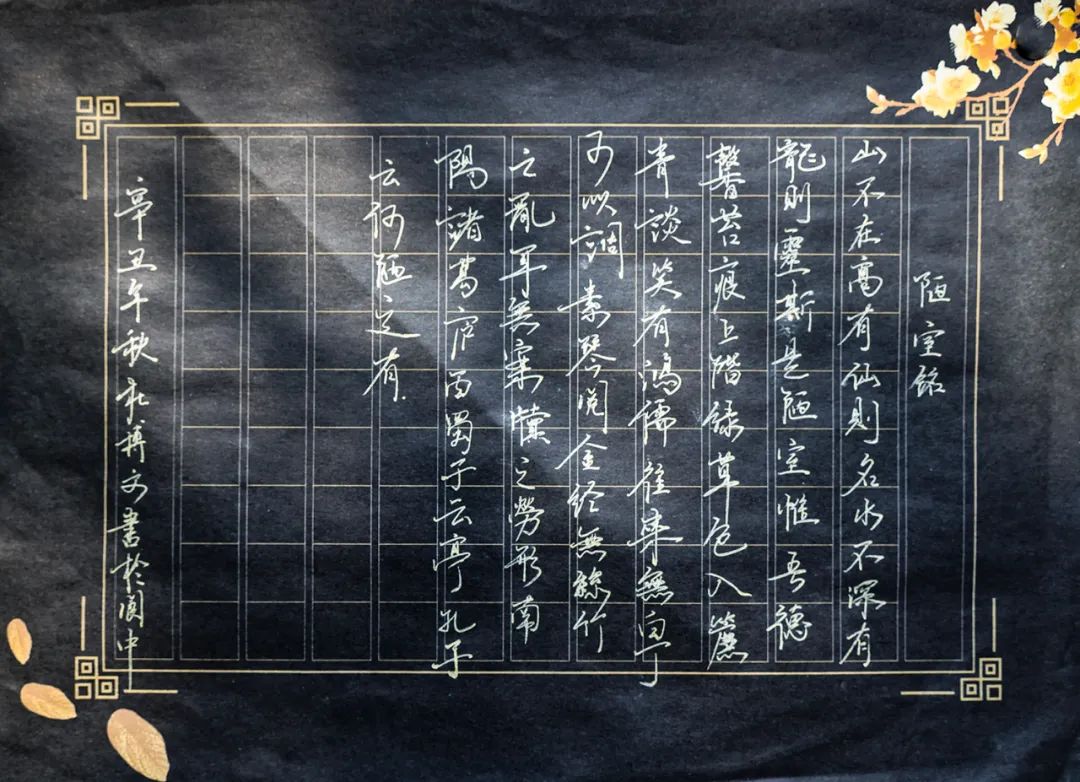 陋室銘
山不在高有仙則名水不深有
龍則靈斯是陋室惟吾德
馨苔痕上階綠草色入簾
青談笑有鴻儒往來無白丁
可以調素琴閱金经無絲竹
之亂耳無案牘之勞形南
陽諸葛廬西蜀子云亭孔子
云何陋之有
辛丑年秋杜博文書於閬中